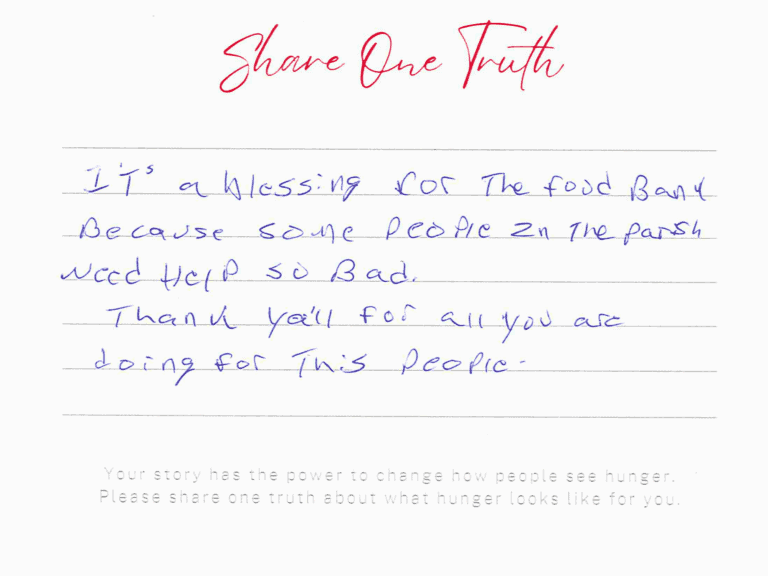 Share One Truth
IT's a blessing for The food Bank
Because some People In The parsh
Need Help so Bad.
Thank ya'll for all you are
doing for This People.
Your story has the power to change how people see hunger.
Please share one truth about what hunger looks like for you.